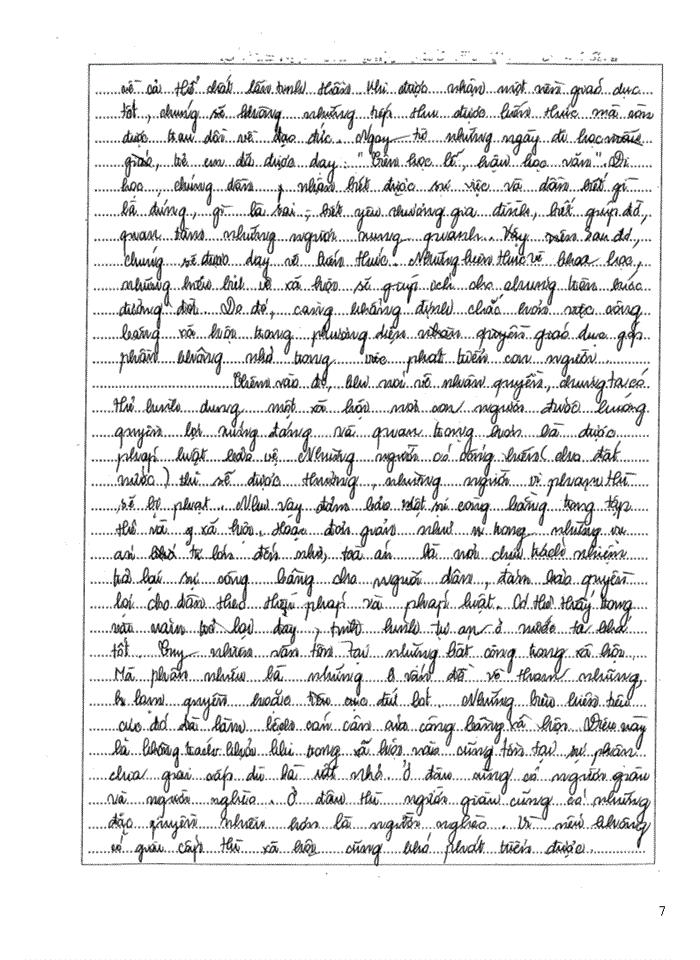 về cả thể chất lẫn tinh thần. Khi được nhận một nền giáo dục
tốt, chúng sẽ không những tiếp thu được kiến thức mà còn
được trau dồi về đạo đức. Ngay từ những ngày đi học mẫu
giáo, trẻ em đã được dạy: "Tiên học lễ, hậu học văn". Đi
học, chúng dần, nhận biết được sự việc và dần biết gì
là đúng, gì là sai, biết yêu thương gia đình, biết giúp đỡ,
quan tâm những người xung quanh. Vậy nên sau đó,
chúng sẽ được dạy về kiến thức. Những kiến thức về khoa học,
những hiểu biết về xã hội sẽ giúp ích cho chúng trên bước
đường đời. Do đó, càng khẳng định chắc hơn việc công
bằng xã hội trong phương diện nhân quyền giáo dục góp
phần không nhỏ trong việc phát triển con người.
Thêm vào đó, khi nói về nhân quyền, chúng ta có
thể hình dung một xã hội nơi con người được hưởng
quyền lợi xứng đáng và quan trọng hơn là được
pháp luật bảo vệ. Những người có cống hiến (cho đất
nước) thì sẽ được thưởng, những người vi phạm thì
sẽ bị phạt. Như vậy đảm bảo một sự công bằng trong tập
thể và xã hội. Hoặc đơn giản như trong những vụ
án từ lớn đến nhỏ, toà án là nơi chịu trách nhiệm
trả lại sự công bằng cho người dân, đảm bảo quyền
lợi cho dân theo Hiến pháp và pháp luật. Có thể thấy trong
vài năm trở lại đây, tình hình trị an ở nước ta khá
tốt. Tuy nhiên vẫn tồn tại những bất công trong xã hội.
Mà phần nhiều là những vấn đề về tham nhũng,
lạm quyền hoặc tiêu cực đút lót. Những biểu hiện tiêu
cực đó đã làm lệch cán cân của công bằng xã hội. Điều này
là không tránh khỏi khi trong xã hội nào cũng tồn tại sự phân
chia giai cấp dù là rất nhỏ. Ở đâu cũng có người giàu
và người nghèo. Ở đâu thì người giàu cũng có những
đặc quyền nhiều hơn là người nghèo. Vì nếu không
có giai cấp thì xã hội cũng khó phát triển được.
7